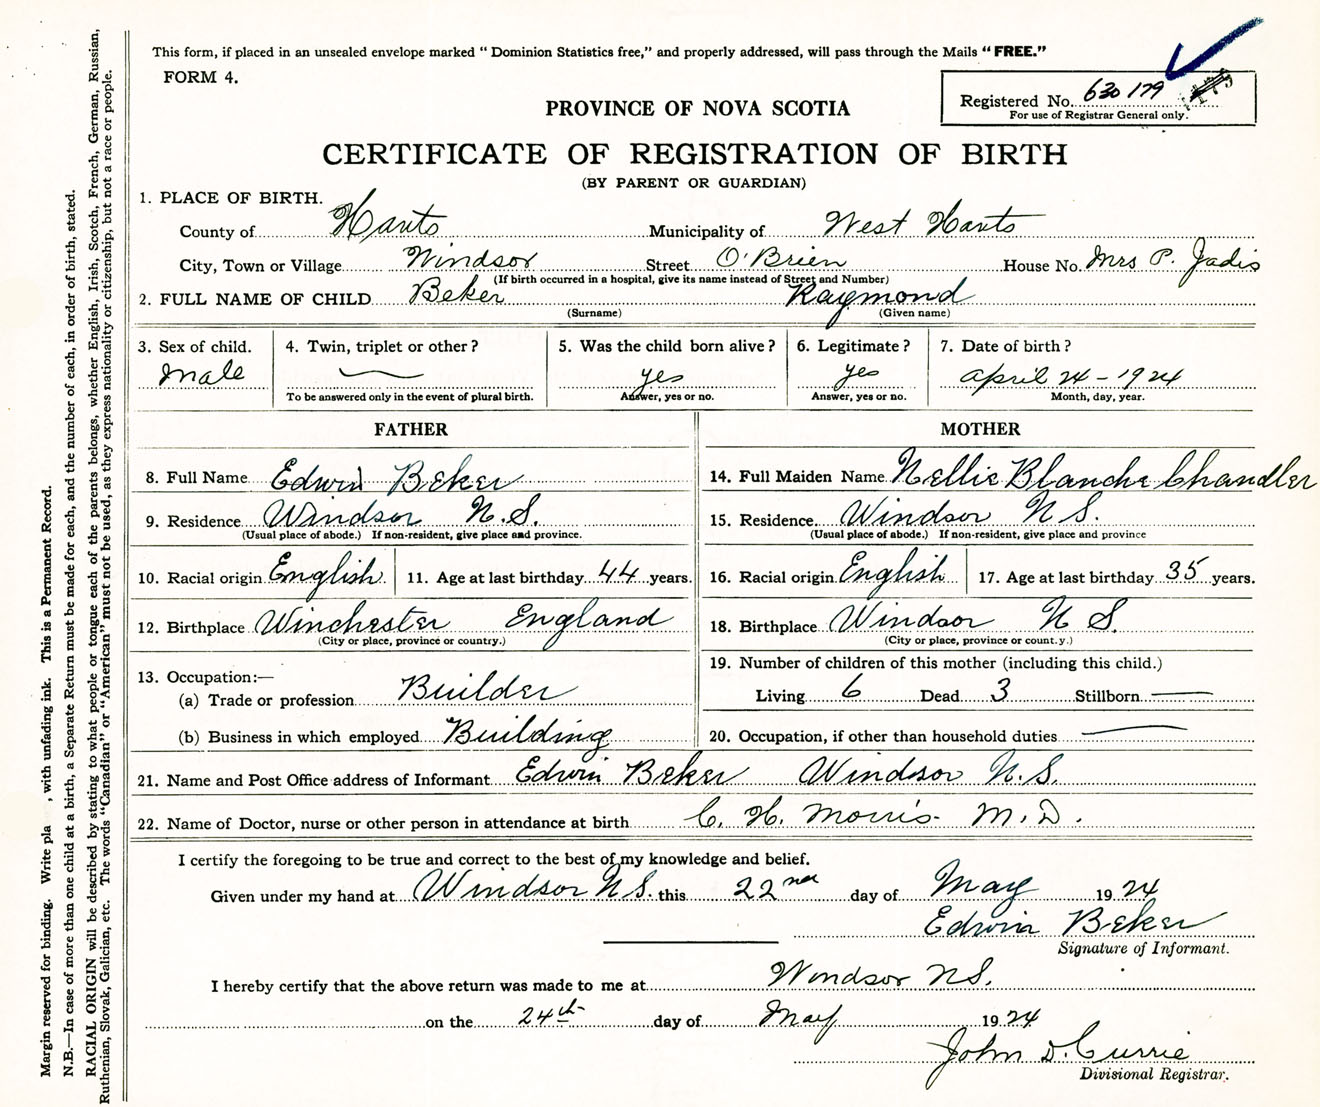 This form, if placed in an unsealed envelope marked "Dominion Statistics free," and properly addressed, will pass through the Mails "FREE."
FORM 4.
Registered No. 630179 1175
For use of Registrar General only.
PROVINCE OF NOVA SCOTIA
CERTIFICATE OF REGISTRATION OF BIRTH
(BY PARENT OR GUARDIAN)
1. PLACE OF BIRTH.
County of Hants Municipality of West Hants
City, Town or Village Windsor Street O'Brien House No. Mrs P. Jadis
(If birth occurred in a hospital, give its name instead of Street and Number)
2. FULL NAME OF CHILD Beker Raymond
(Surname) (Given name)
3. Sex of child. 4. Twin, triplet or other? 5. Was the child born alive? 6. Legitimate? 7. Date of birth?
Male yes yes April 24-1924
To be answered only in the event of plural birth. Answer, yes or no. Answer, yes or no. Month, day, year.
FATHER MOTHER
8. Full Name Edwin Beker 14. Full Maiden Name Nellie Blanche Chandler
9. Residence Windsor N.S. 15. Residence. Windsor N S.
(Usual place of abode.) If non-resident, give place and province. (Usual place of abode.) If non-resident, give place and province
10. Racial origin English 11. Age at last birthday 44 years. 16. Racial origin English 17. Age at last birthday 35 years.
12. Birthplace Winchester England 18. Birthplace Windsor N S.
(City or place, province or country.) (City or place, province or count.y.)
13. Occupation:— 19. Number of children of this mother (including this child.)
(a) Trade or profession Builder Living 6 Dead 3 Stillborn —
(b) Business in which employed Building 20. Occupation, if other than household duties —
21. Name and Post Office address of Informant Edwin Beker Windsor N.S.
22. Name of Doctor, nurse or other person in attendance at birth C. H. Morris. M.D.
I certify the foregoing to be true and correct to the best of my knowledge and belief.
Given under my hand at Windsor N S. this 22nd day of May 1924
Edwin Beker
Signature of Informant.
I hereby certify that the above return was made to me at Windsor NS.
on the 24th day of May 1924
John D. Currie
Divisional Registrar.
Margin reserved for binding. Write pla , with unfading ink. This is a Permanent Record.
N.B.—In case of more than one child at a birth, a Separate Return must be made for each, and the number of each, in order of birth, stated.
RACIAL ORIGIN will be described by stating to what people or tongue each of the parents belongs, whether English, Irish, Scotch, French, German, Russian,
Ruthenian, Slovak, Galician, etc. The words "Canadian" or "American" must not be used, as they express nationality or citizenship, but not a race or people.